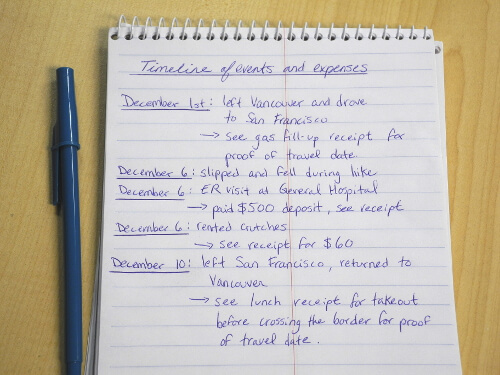 Timeline of events and expenses
December 1st: left Vancouver and drove
to San Francisco
→ see gas fill-up receipt for
proof of travel date.
December 6: slipped and fell during hike
December 6: ER visit at General Hospital
→ paid $500 deposit, see receipt
December 6: rented crutches
→ see receipt for $60
December 10: left San Francisco, returned to
Vancouver
→ see lunch receipt for takeout
before crossing the border for proof
of travel date.